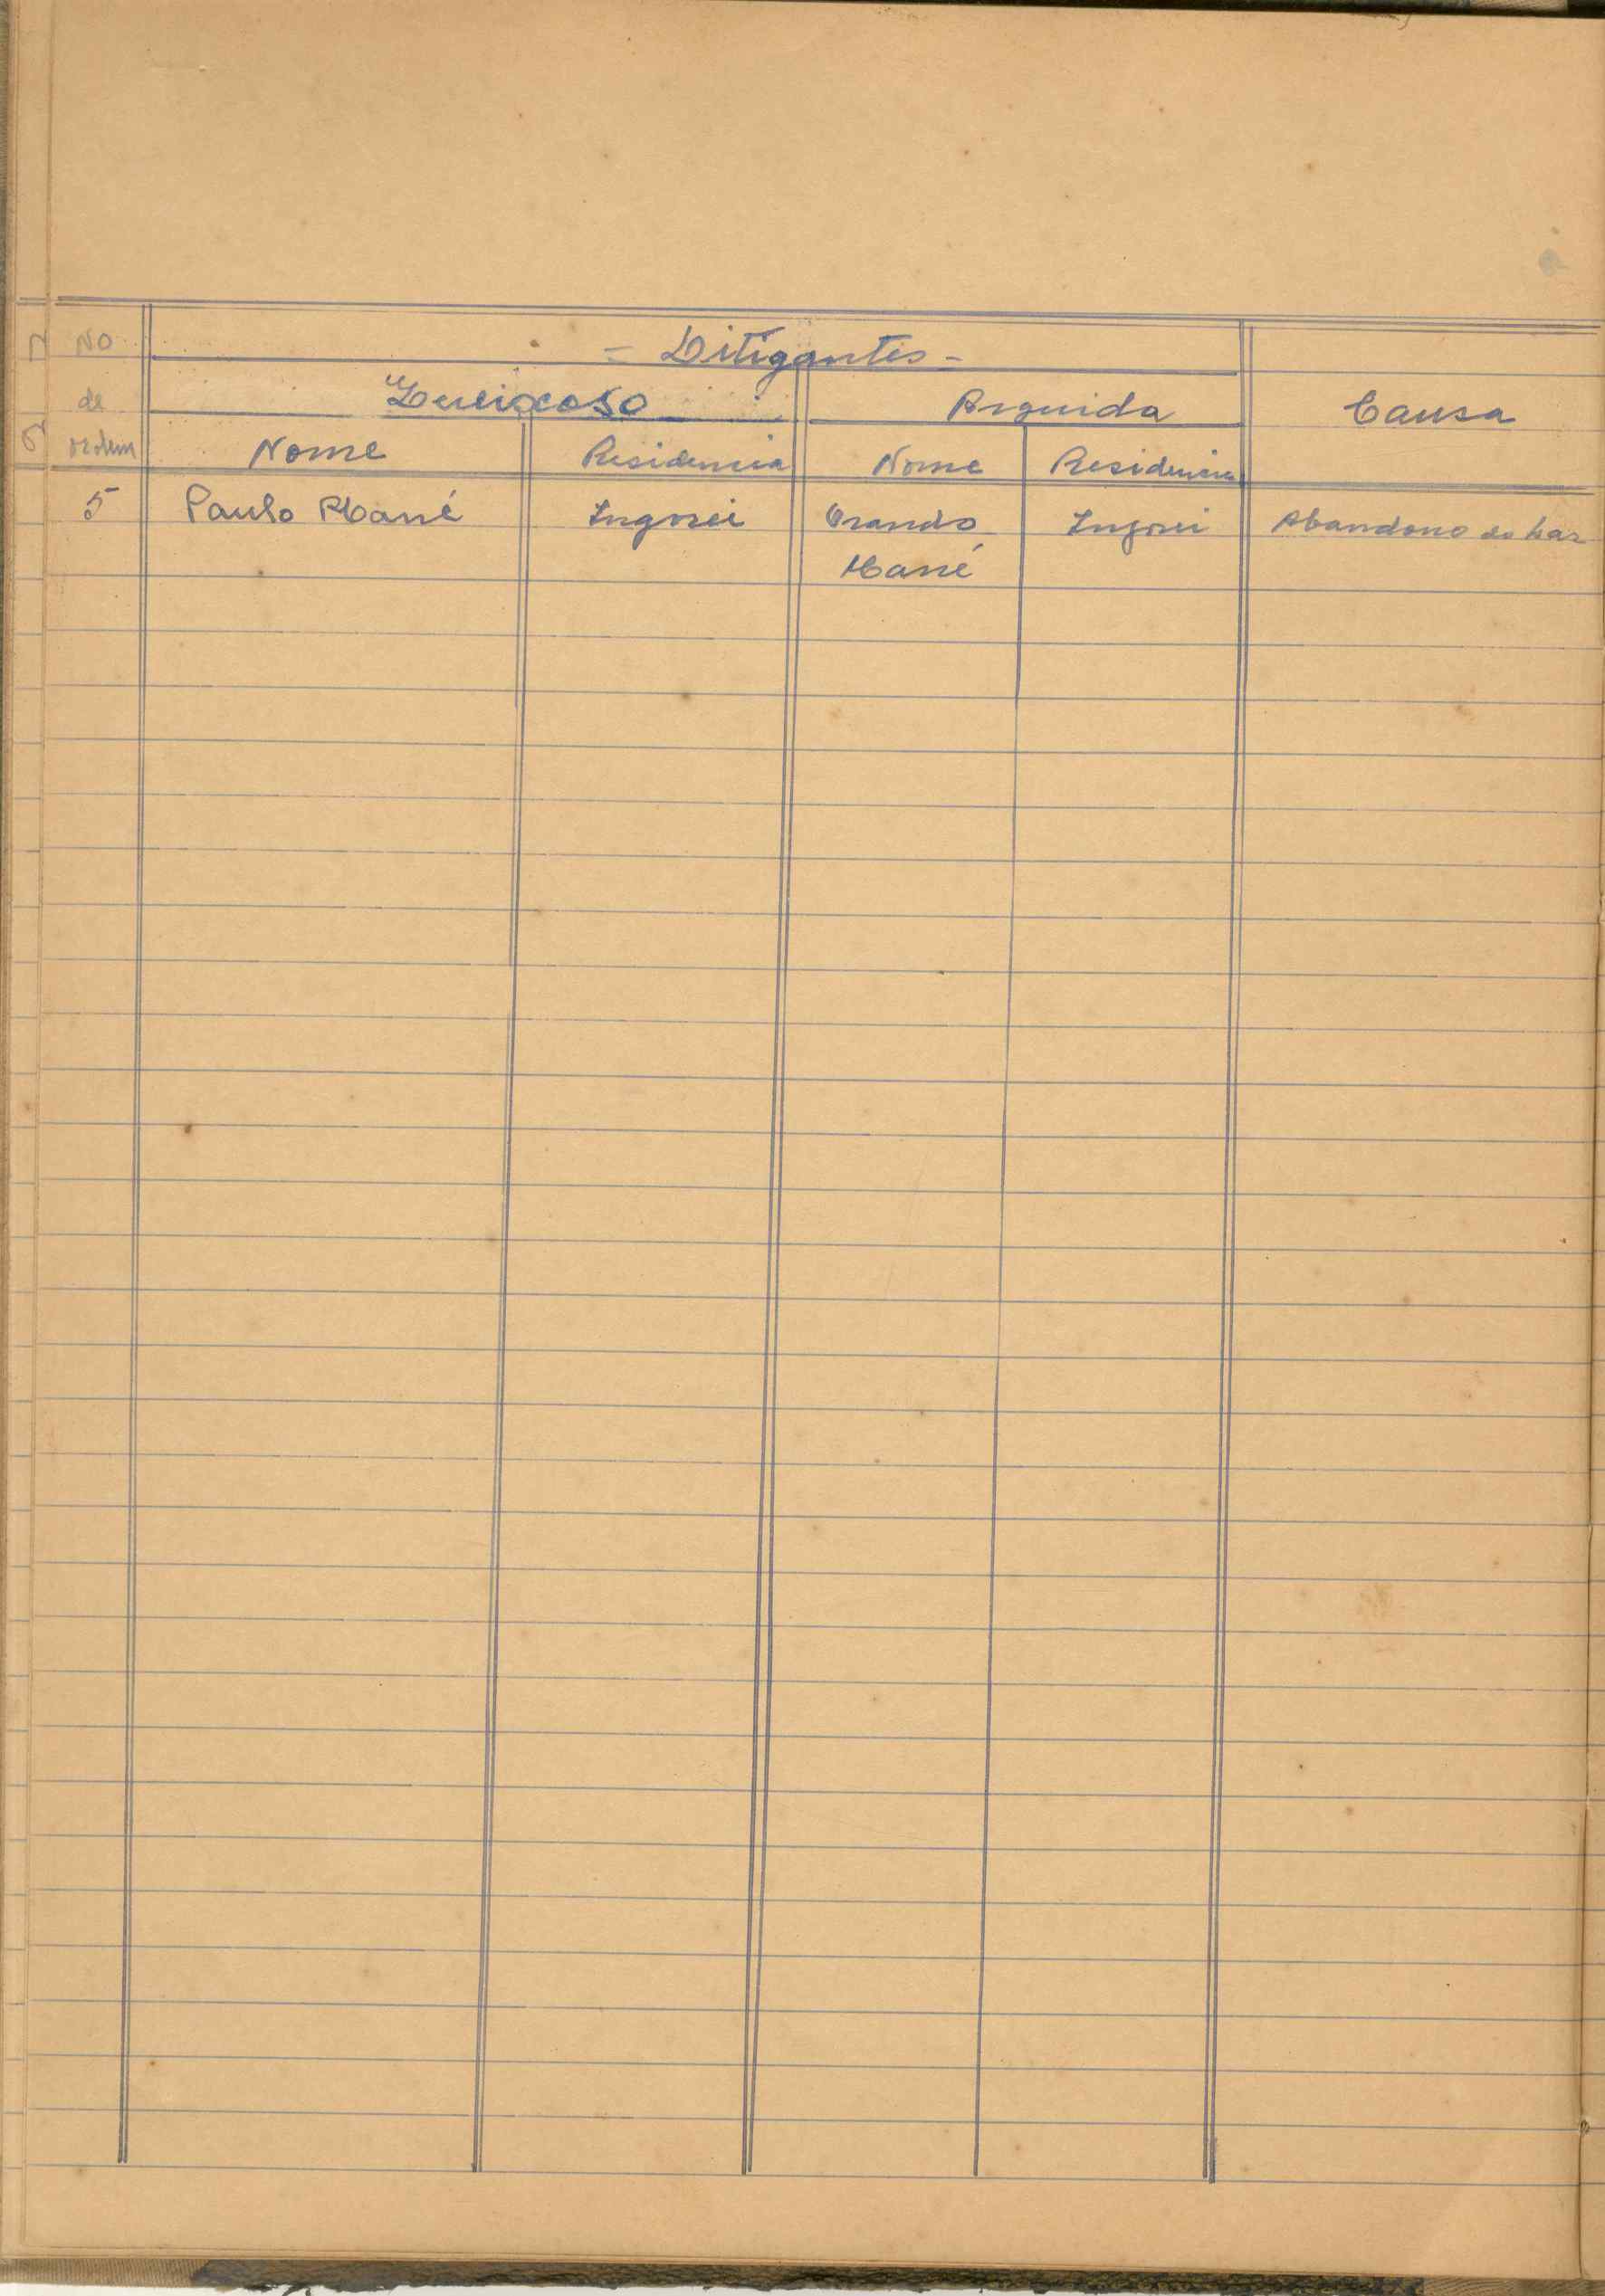 Nº
= Litigantes =
de
Queixoso
Arguida
Causa
ordem
Nome
Residencia
Nome
Residencia
5
Paulo Mané
Ingorei
Ingorei
Abandono do lar
Mané